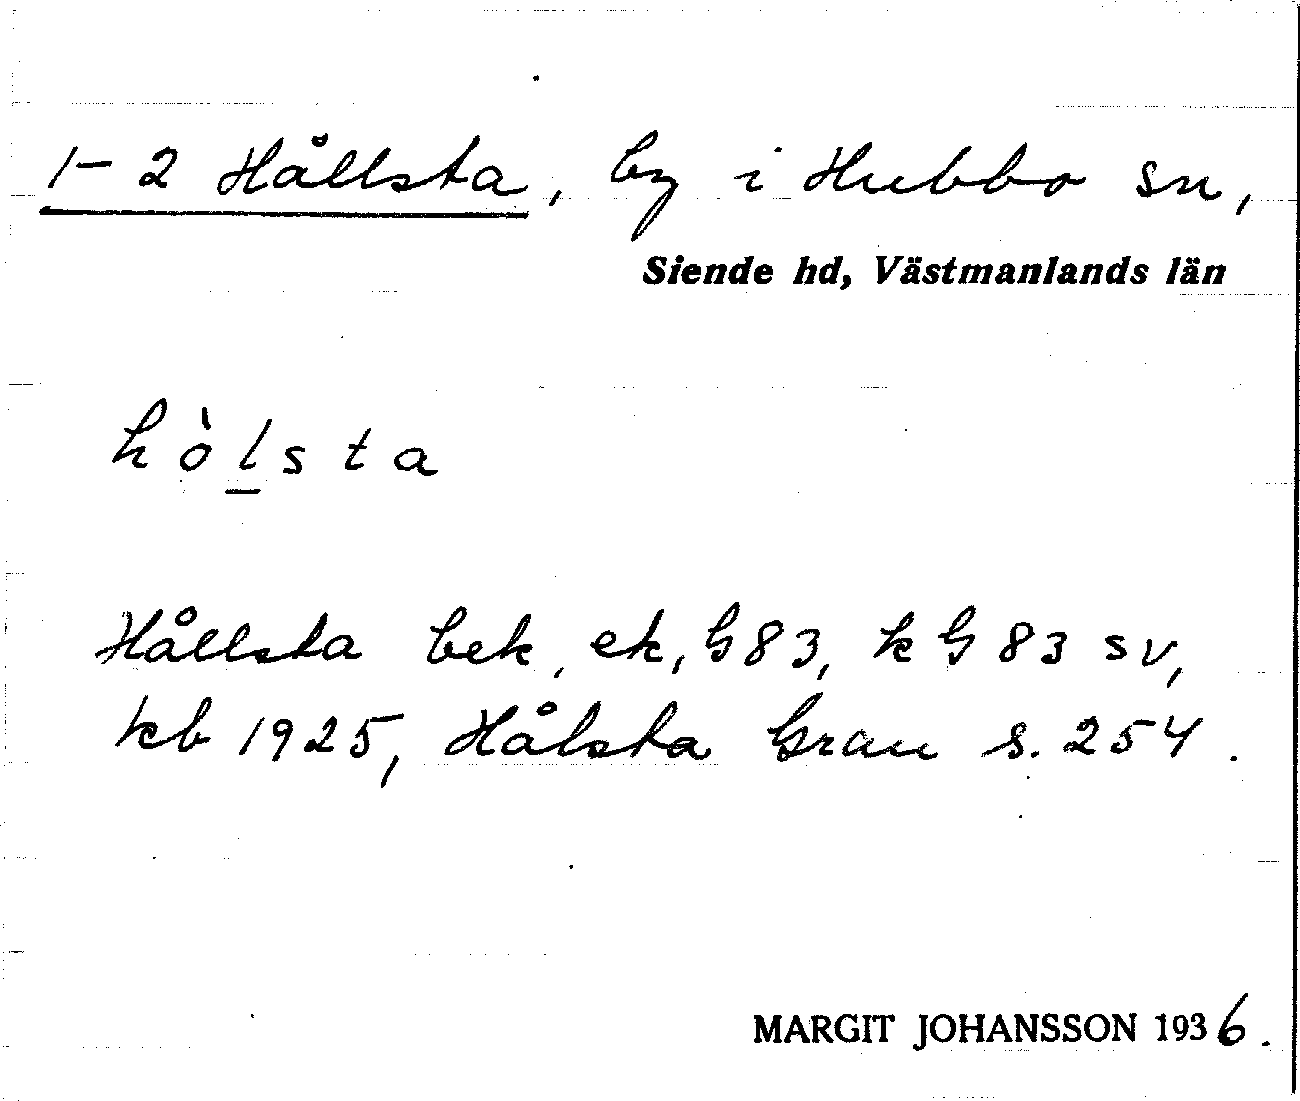 1-2 Hållsta, by i Hubbo sn,
Siende hd, Västmanlands län
hòlsta
Hållsta bek, ek, G83, k G83 sv,
kb 1925, Hålsta Grau s. 254.
MARGIT JOHANSSON 1936.